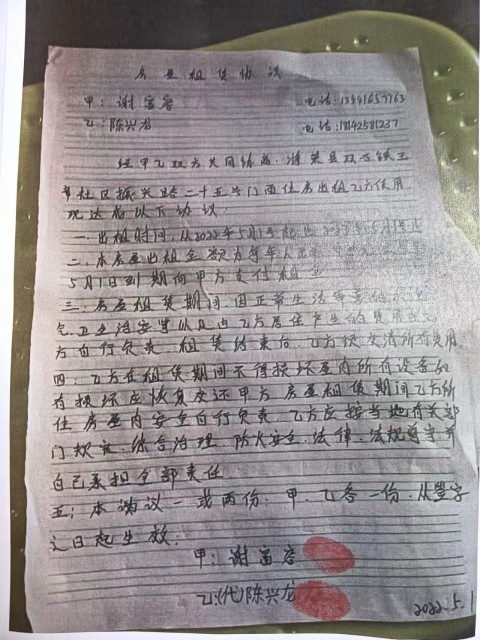 房屋租赁协议
甲：谢富容 电话：
乙：陈兴龙 电话：18142581237
经甲乙双方共同协商，将荣县双古镇
社区振兴路二十五号门面住房出租乙方使用
现达成以下协议
一.出租时间，从2022年5月1号起
二、本房屋出租金额为每年
5月1日到期向甲方支付租金
三、房屋租赁期间，因正常生活
气、卫生治安等以及占乙方居住产生的费用由乙
方自行负责，租赁结束后，乙方须交清所有费用
四：乙方在租赁期间不得损坏屋内所有设备如
有损坏应恢复交还甲方，房屋租赁期间乙方所
住房屋内安全自行负责，乙方应按当地有关部
门规定，综合治理，防火安全，法律，法规
自己承担全部责任
五：本协议一式两份，甲、乙各一份，从签字
之日起生效：
甲：谢富容
乙：(代)陈兴龙
2022.5.1